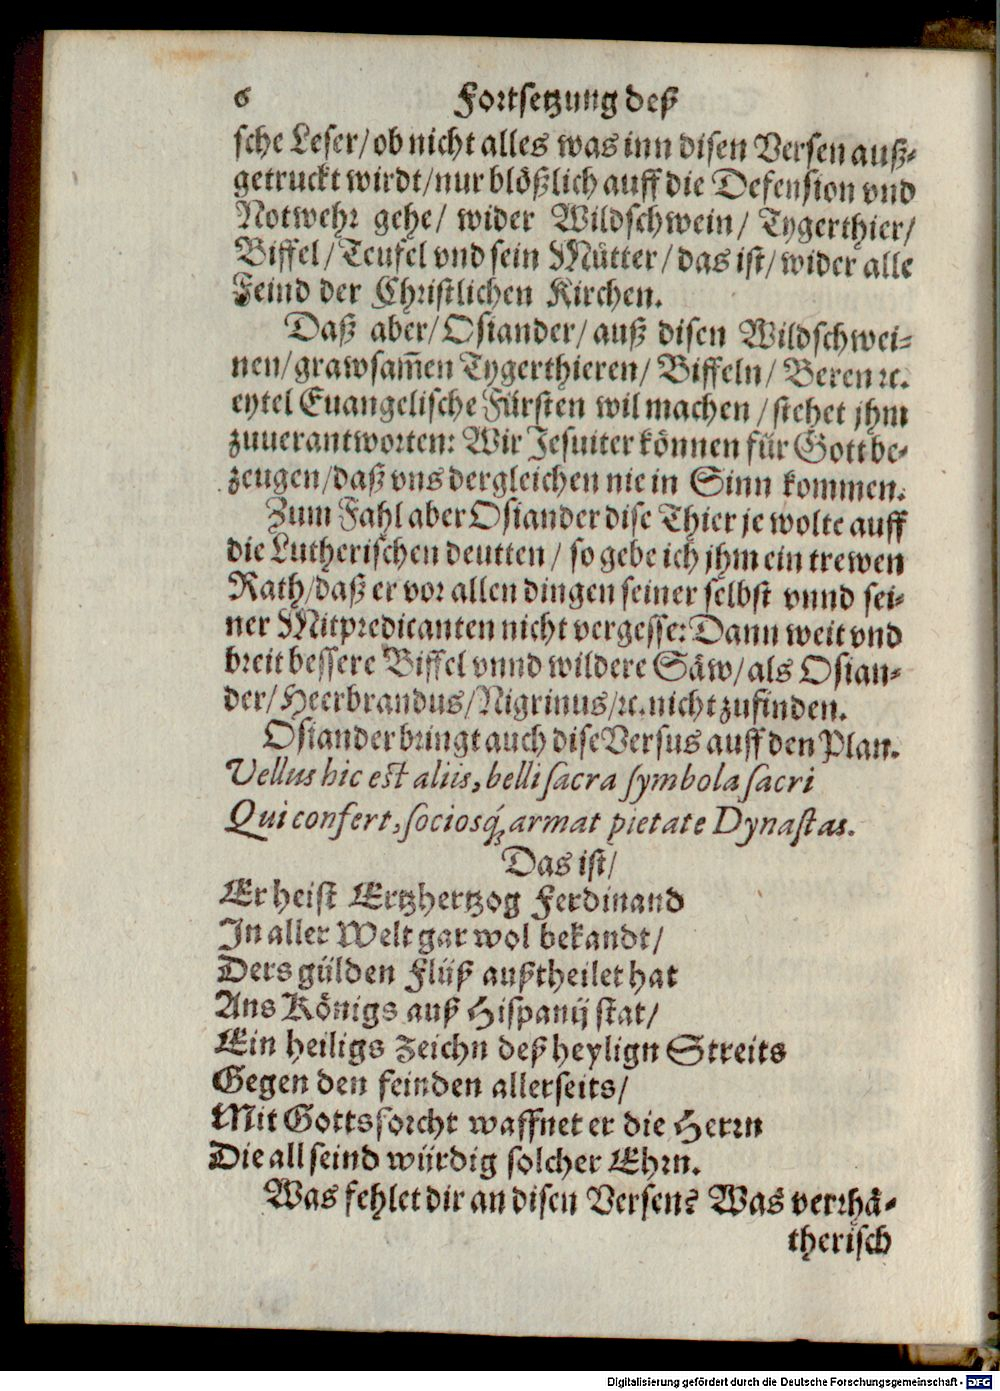 6 Fortsetzung deß
sche Leser/ ob nicht alles was inn disen Versen auß-
getruckt wirdt/ nur blößlich auff die Defension vnd
Notwehr gehe/ wider Wildschwein/ Tygerthier/
Biffel/ Teufel vnd sein Mütter/ das ist/ wider alle
Feind der Christlichen Kirchen.
Daß aber/ Osiander/ auß disen Wildschwei-
nen/ grawsam̃en Tygerthieren/ Biffeln/ Beren ꝛc.
eytel Euangelische Fürsten wil machen/ stehet jhm
zuuerantworten: Wir Jesuiter können für Gott be-
zeugen/ daß vns dergleichen nie in Sinn kommen.
Zum Fahl aber Osiander dise Thier je wolte auff
die Lutherischen deutten/ so gebe ich jhm ein trewen
Rath/ daß er vor allen dingen seiner selbst vnnd sei-
ner Mitpredicanten nicht vergesse: Dann weit vnd
breit bessere Biffel vnnd wildere Säw/ als Osian-
der/ Heerbrandus/ Nigrinus/ ꝛc. nicht zufinden.
Osiander bringt auch dise Versus auff den Plan.
Vellus hic est aliis, belli sacra symbola sacri
Qui confert, sociosq́; armat pietate Dynastas.
Das ist/
Er heist Ertzhertzog Ferdinand
In aller Welt gar wol bekandt/
Ders gülden Flüß außtheilet hat
Ans Königs auß Hispanij stat/
Ein heiligs Zeichn deß heylign Streits
Gegen den feinden allerseits/
Mit Gottsforcht waffnet er die Herrn
Die all seind würdig solcher Ehrn.
Was fehlet dir an disen Versen? Was verrhä-
therisch
Digitalisierung gefördert durch die Deutsche Forschungsgemeinschaft - DFG